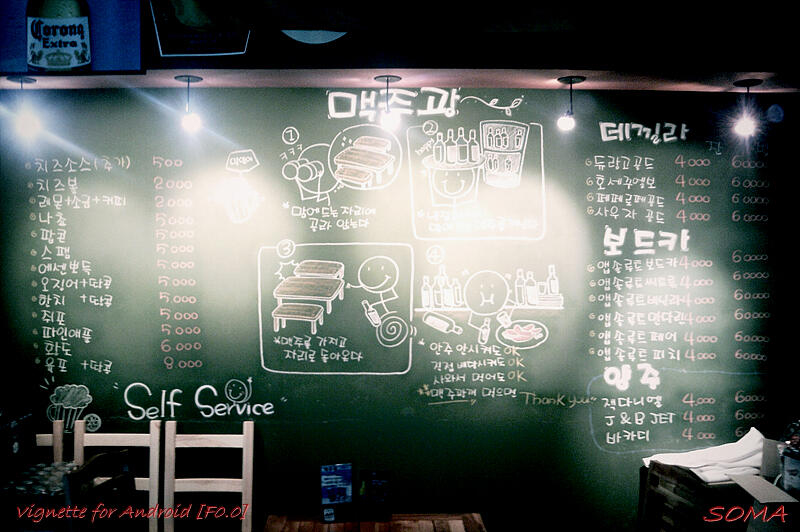 Corona
Extra
맥주광
치즈소스(추가) 500
치즈볼 2000
레몬+소금+커피 2.000
나쵸 5.000
팝콘 5.000
스팸 5.000
5.000
오징어+땅콩 5.000
한치 +땅콩 5.000
쥐포 5.000
파인애플 5.000
화도 6.000
육포 +땅콩 8.000
"Self Service"
①
ㅋㅋㅋ
*맘에드는 자리에
골라 앉는다
②
happy
③
*맥주를 가지고
자리로 돌아온다
④
안주 안시켜도 OK
배달시켜도 OK
사와서 먹어도 OK
*맥주만 먹으면 Thank you
데낄라
잔
듀라고골드 4.000 60.000
호세꾸엘보 4.000 60.000
페페로페골드 4.000 60.000
사우자 골드 4.000 60.000
보드카
앱솔루트보드카 4.000 60.000
앱솔루트 씨트론 4.000 60.000
앱솔루트 바닐라 4.000 60.000
앱솔루트 만다린 4.000 60.000
앱솔루트 페어 4.000 60.000
앱솔루트 피치 4.000 60.000
양주
잭다니엘 4.000 60.000
J&B JET 4.000 60.000
바카디 4.000 60.000
Vignette for Android [F0.0]
SOMA